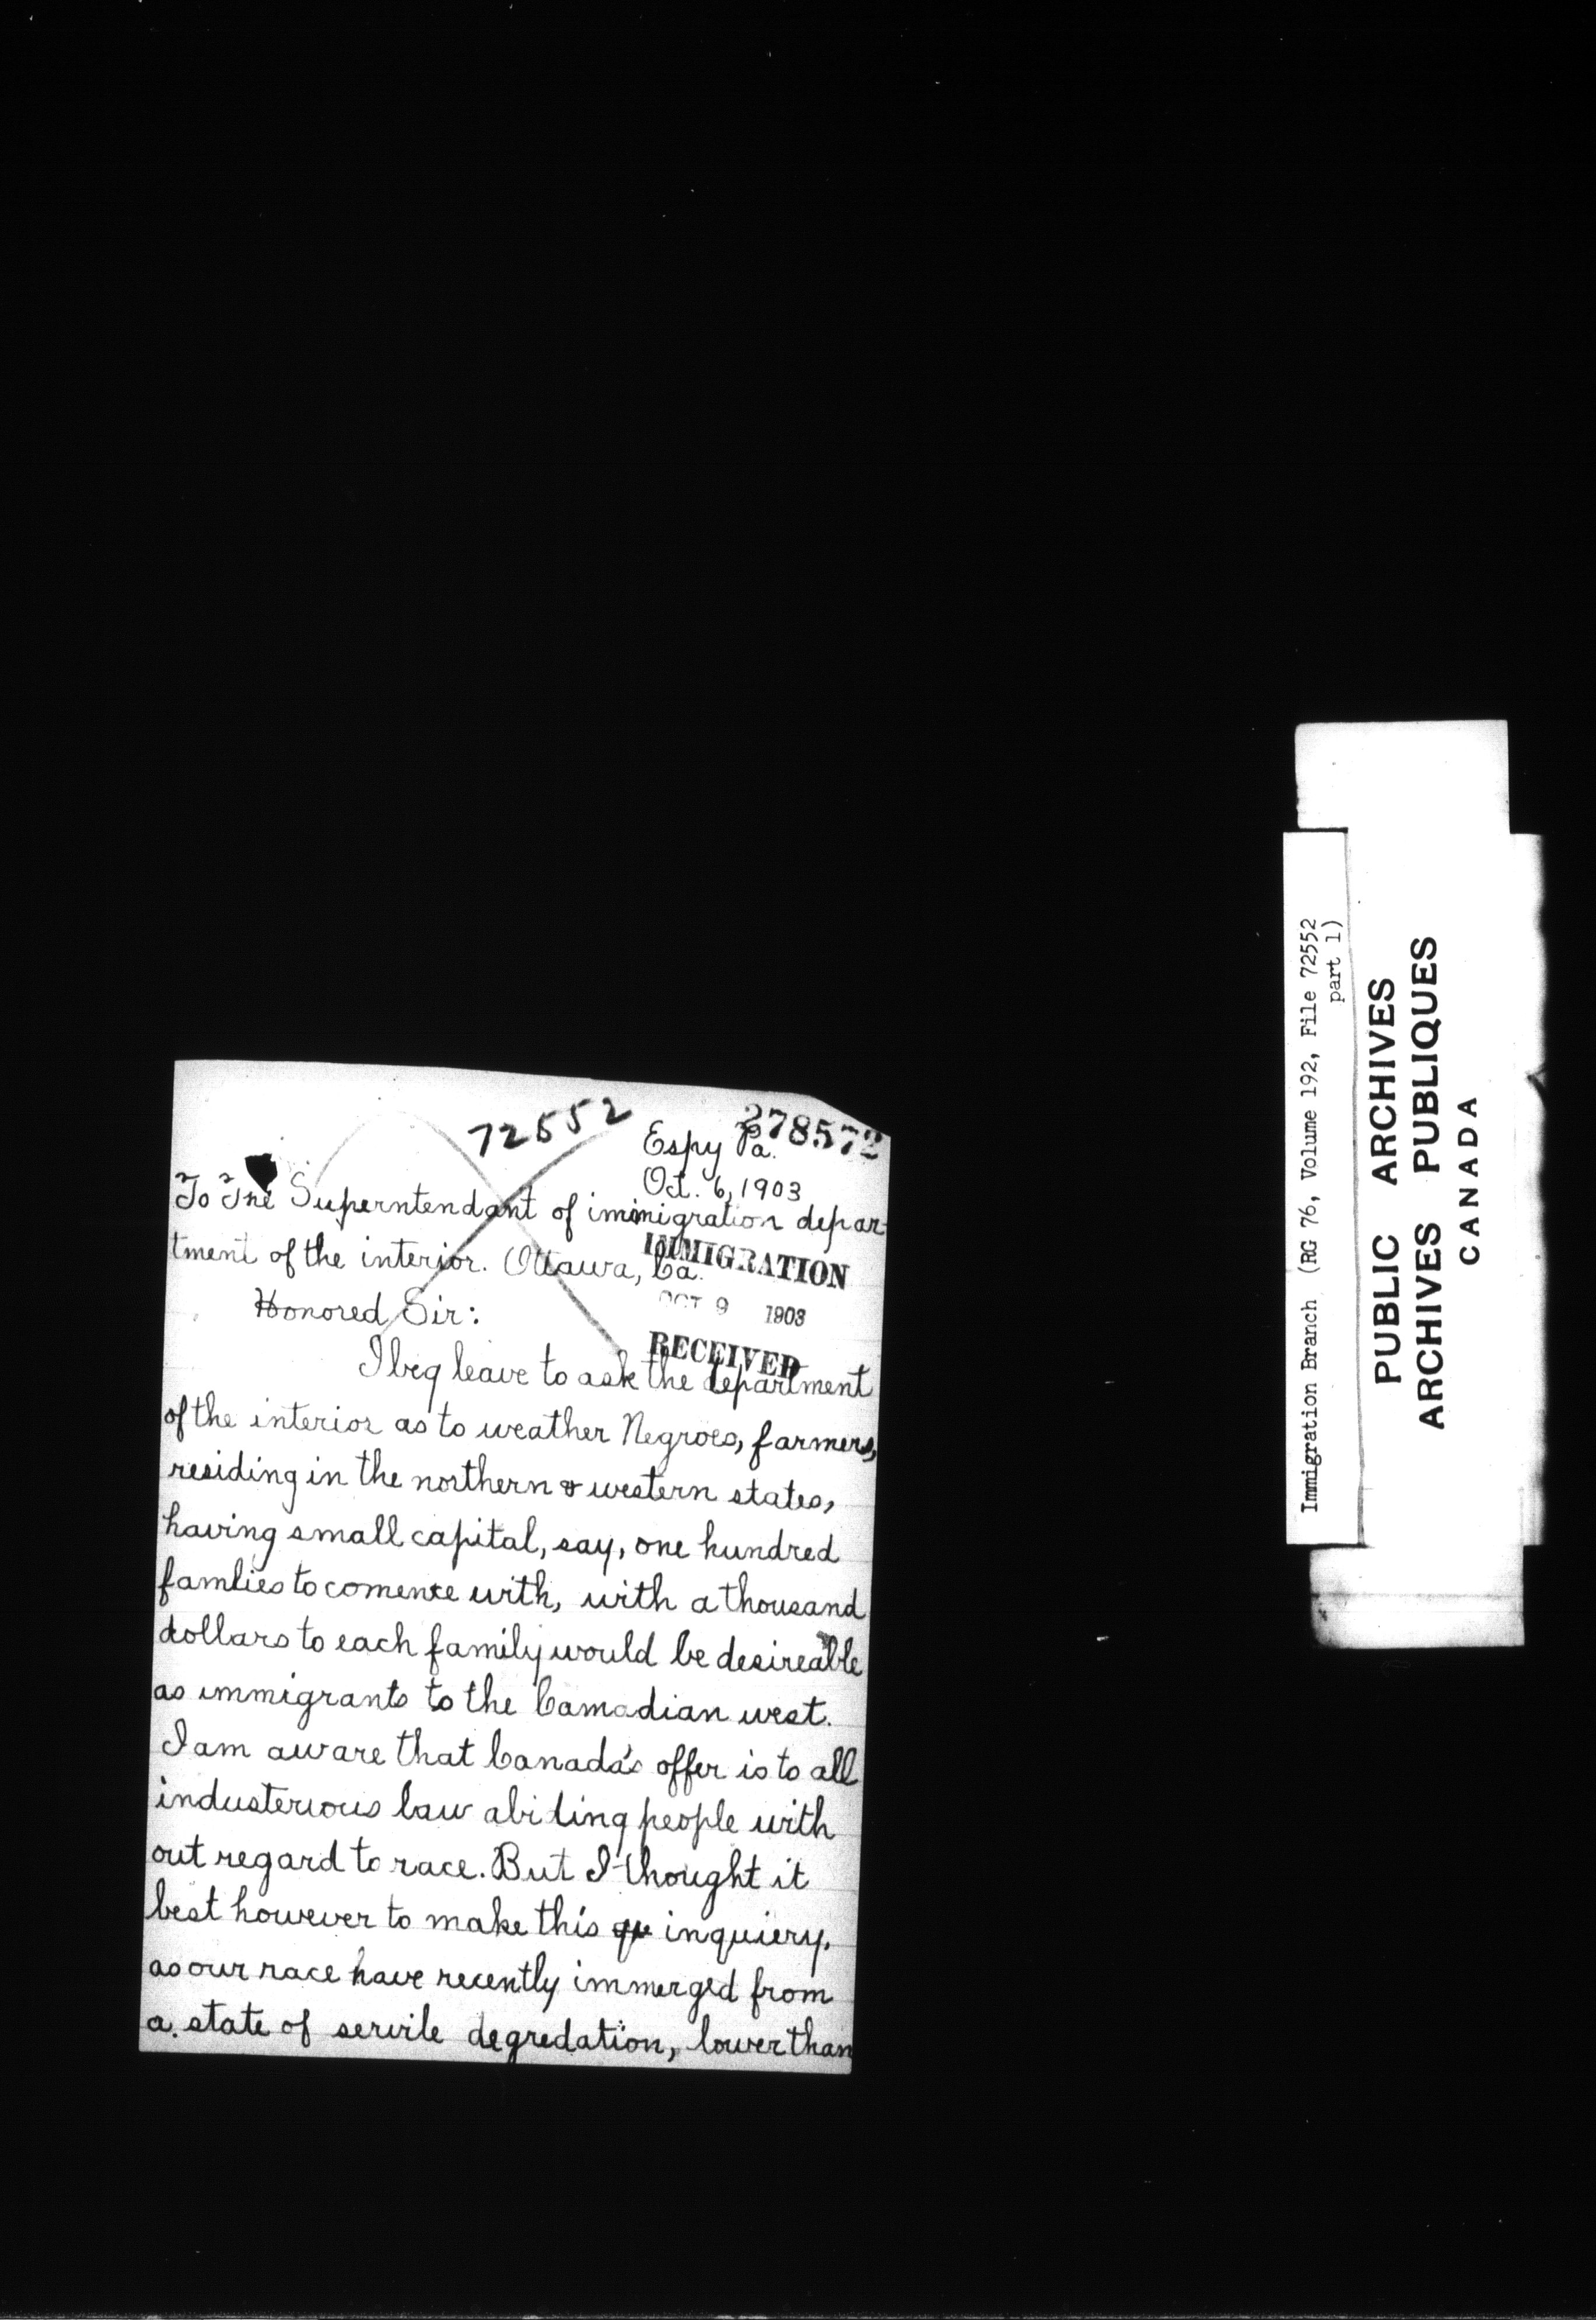 72552
278572
Espy Pa.
Oct. 6, 1903
To The Superntendant of immigration depar-
tment of the interior. Ottawa, Ca.
IMMIGRATION
OCT 9 1903
RECEIVED
Honored Sir:
I beg leave to ask the department
of the interior as to weather Negroes, farmers,
residing in the northern & western states,
having small capital, say, one hundred
famlies to comence with, with a thousand
dollars to each family would be desireable
as immigrants to the Camadian west.
I am aware that Canada's offer is to all
industerious law abiding people with
out regard to race. But I thought it
best however to make this qu inquiery,
as our race have recently immerged from
a. state of servile degredation, lower than
Immigration Branch (RG 76, Volume 192, File 72552
part 1)
PUBLIC ARCHIVES
ARCHIVES PUBLIQUES
CANADA